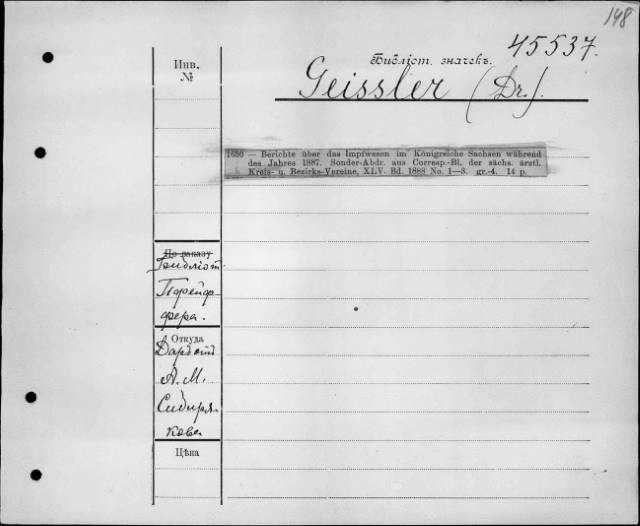 148
45537.
Библіот. значекъ.
Инв.
№
Geissler (Dr.).
1650 — Berichte über das Impfwesen im Königreiche Sachsen während
des Jahres 1887. Sonder-Abdr. aus Corresp.-Bl. der sächs. ärztl.
Kreis- u. Bezirks-Vereine, XLV. Bd. 1888 No. 1—3. gr.-4. 14 p.
По заказу
Библіот.
Пфейф-
фера.
Откуда
Даръ отъ
А. М.
Сибиря-
кова
Цѣна